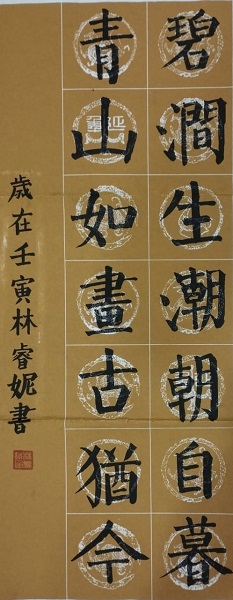 碧澗生潮朝自暮
青山如畫古猶今
歲在壬寅林睿妮書